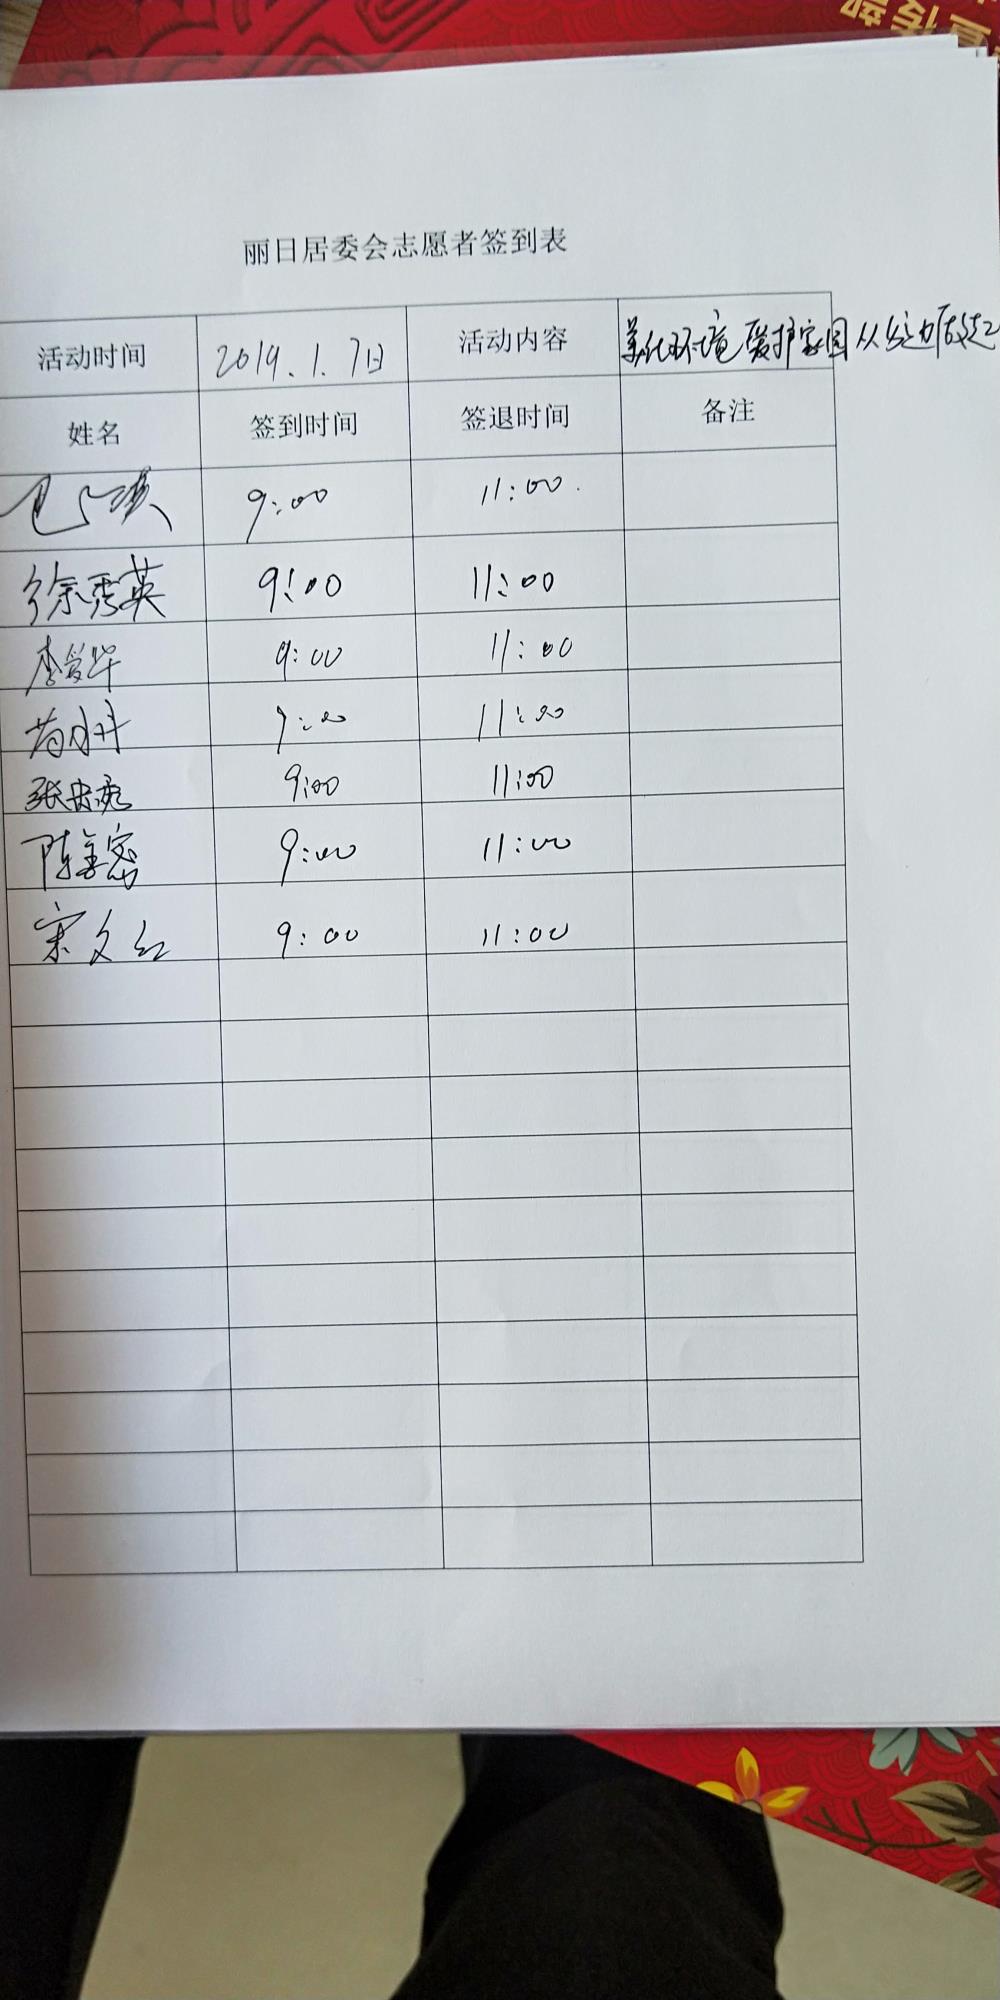 宣传部
丽日居委会志愿者签到表
活动时间 2019.1.7日 活动内容 美化环境 爱护家园 从身边做起
姓名 签到时间 签退时间 备注
9:00 11:00.
徐秀英 9:00 11:00
李爱华 9:00 11:00
9:00 11:00
9:00 11:00
陈金宏 9:00 11:00
宋文红 9:00 11:00